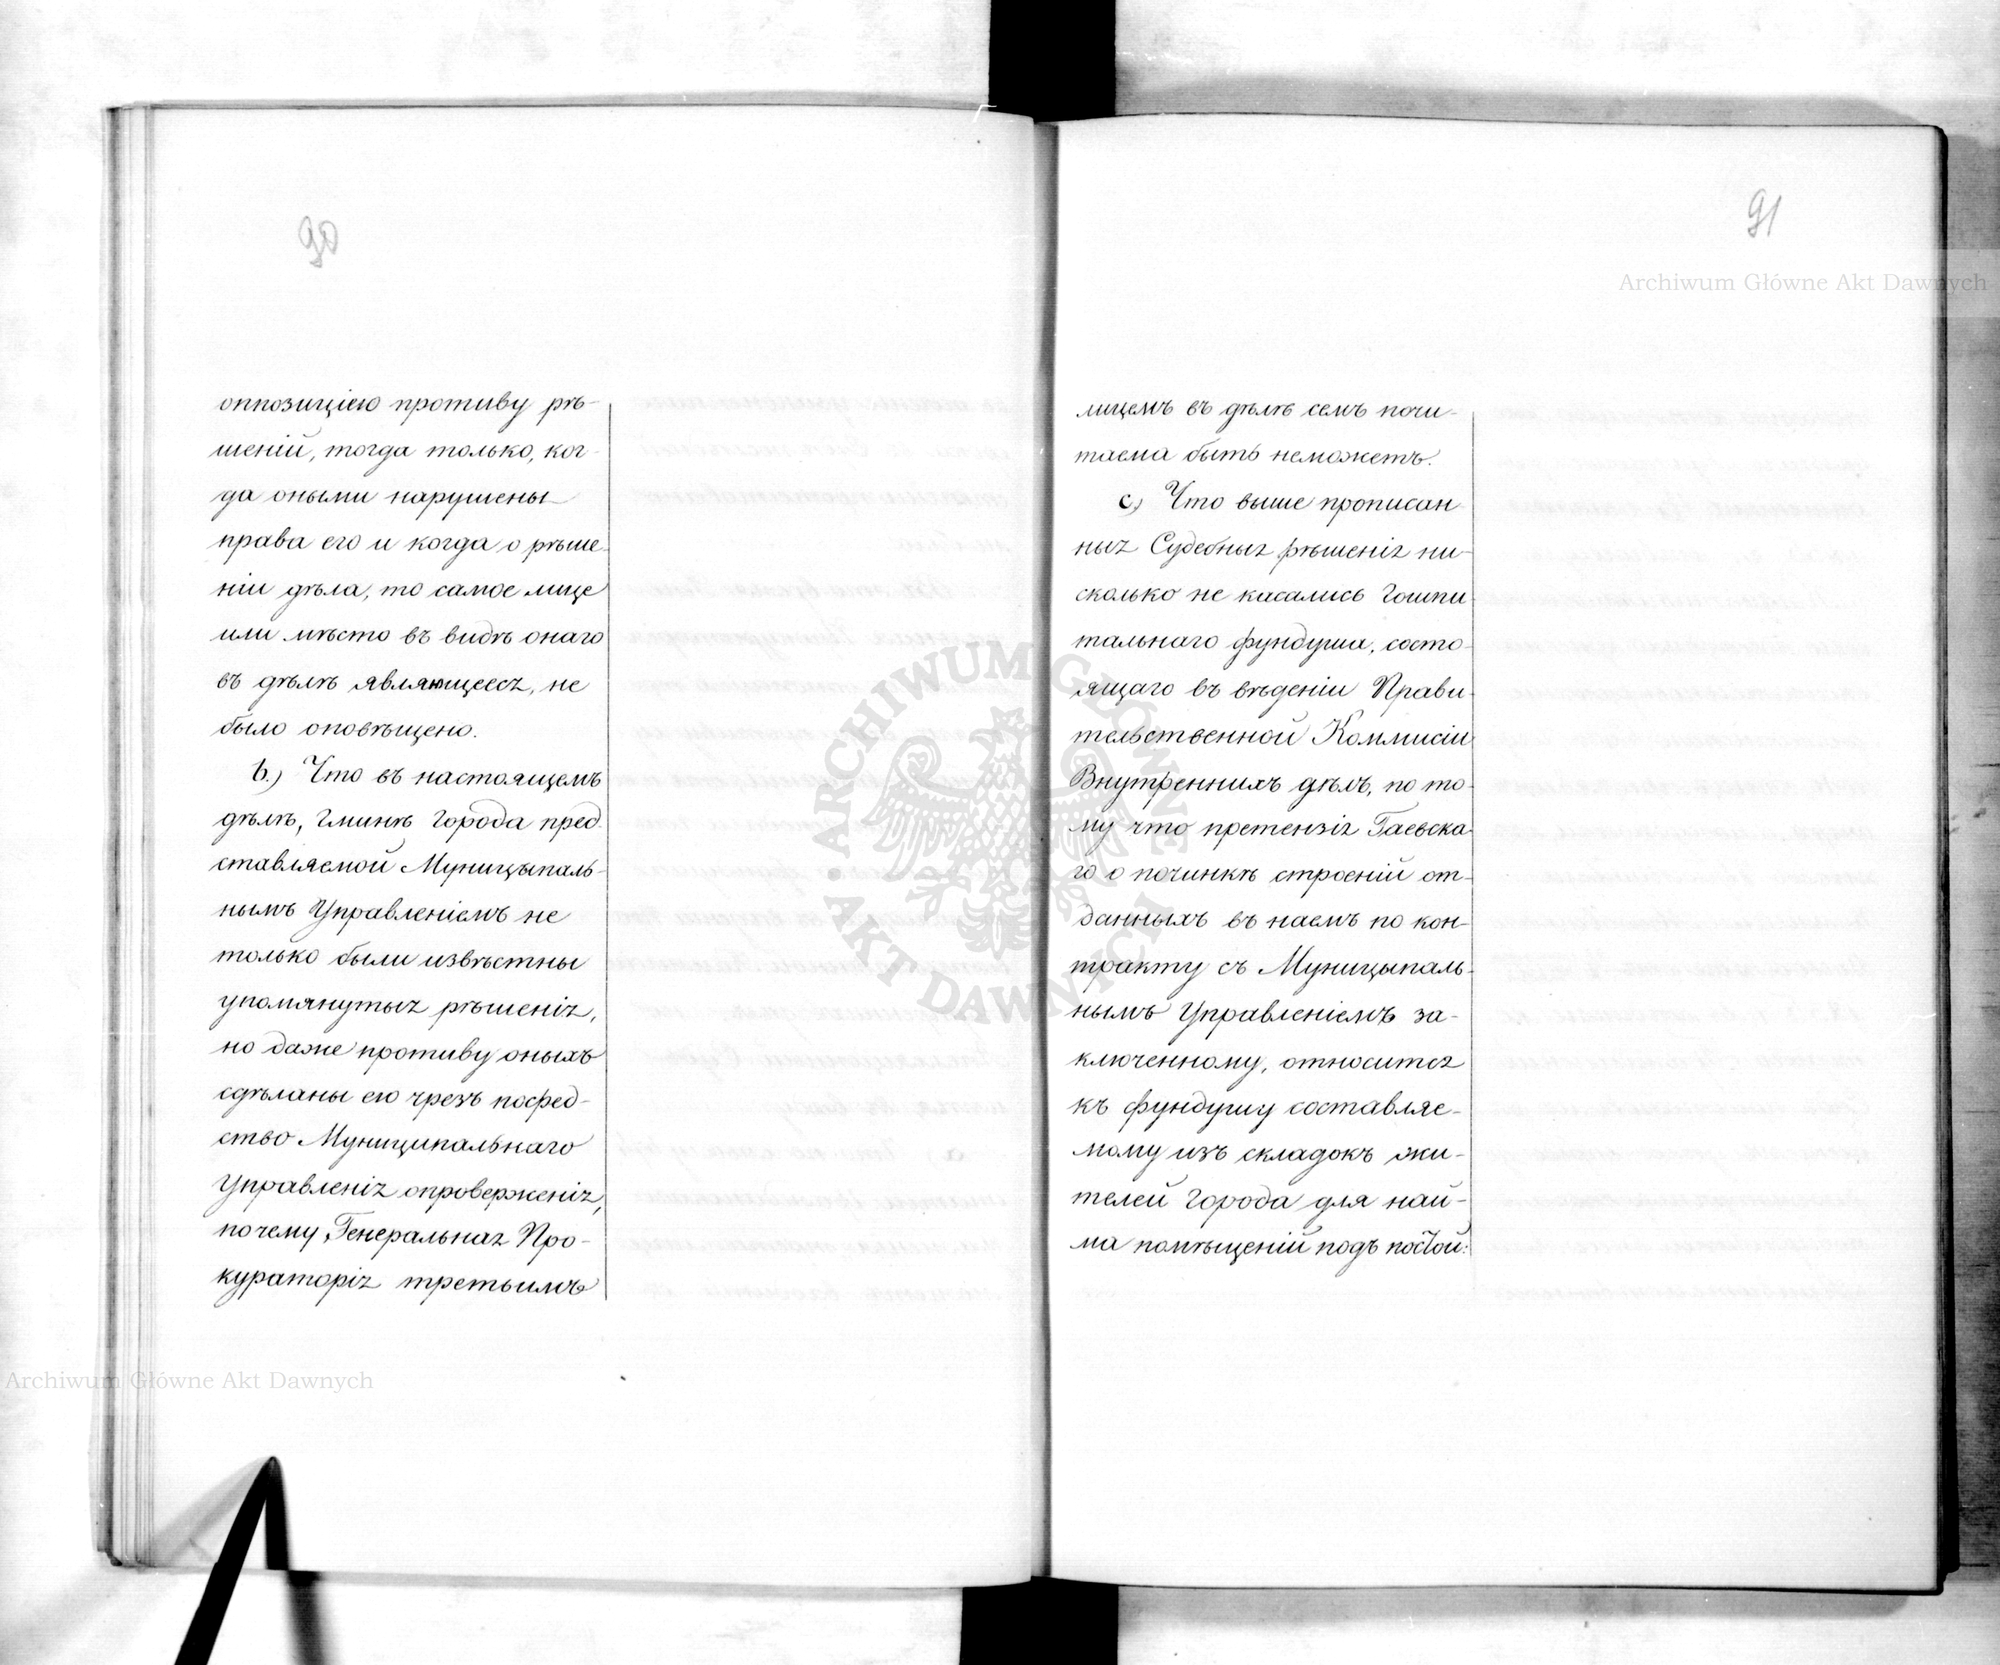 90
оппозицiею противу рѣ-
шенiй, тогда только, ког-
да оными нарушены
права его и когда о рѣше-
нiи дѣла, то самое лице
или мѣсто въ видѣ онаго
въ дѣлѣ являющееся, не
было оповѣщено.
b.) Что въ настоящемъ
дѣлѣ, Гминѣ Города пред-
ставляемой Муницыпаль-
нымъ Управленiемъ не
только были извѣстны
упомянутыя рѣшенiя,
но даже противу оныхъ
сдѣланы ею чрезъ посред-
ство Муниципальнаго
Управленiя опроверженiя,
почему, Генеральная Про-
кураторiя третьимъ
91
лицемъ въ дѣлѣ семъ почи-
таема быть неможетъ.
c) Что выше прописан
ныя Судебныя рѣшенiя ни-
сколько не касались Гошпи-
тальнаго фундуша, состо-
ящаго въ вѣденiи Прави-
тельственной Коммисiи
Внутреннихъ дѣлъ, по то-
му что претензiя Гаевска-
го о починкѣ строенiй от-
данныхъ въ наемъ по кон-
тракту съ Муницыпаль-
нымъ Управленiемъ за-
ключенному, относится
къ фундушу составляе-
мому изъ складокъ жи-
телей Города для най-
ма помѣщенiй подъ постой:
Archiwum Główne Akt Dawnych
ARCHIWUM GŁÓWNE
AKT DAWNYCH
Archiwum Główne Akt Dawnych